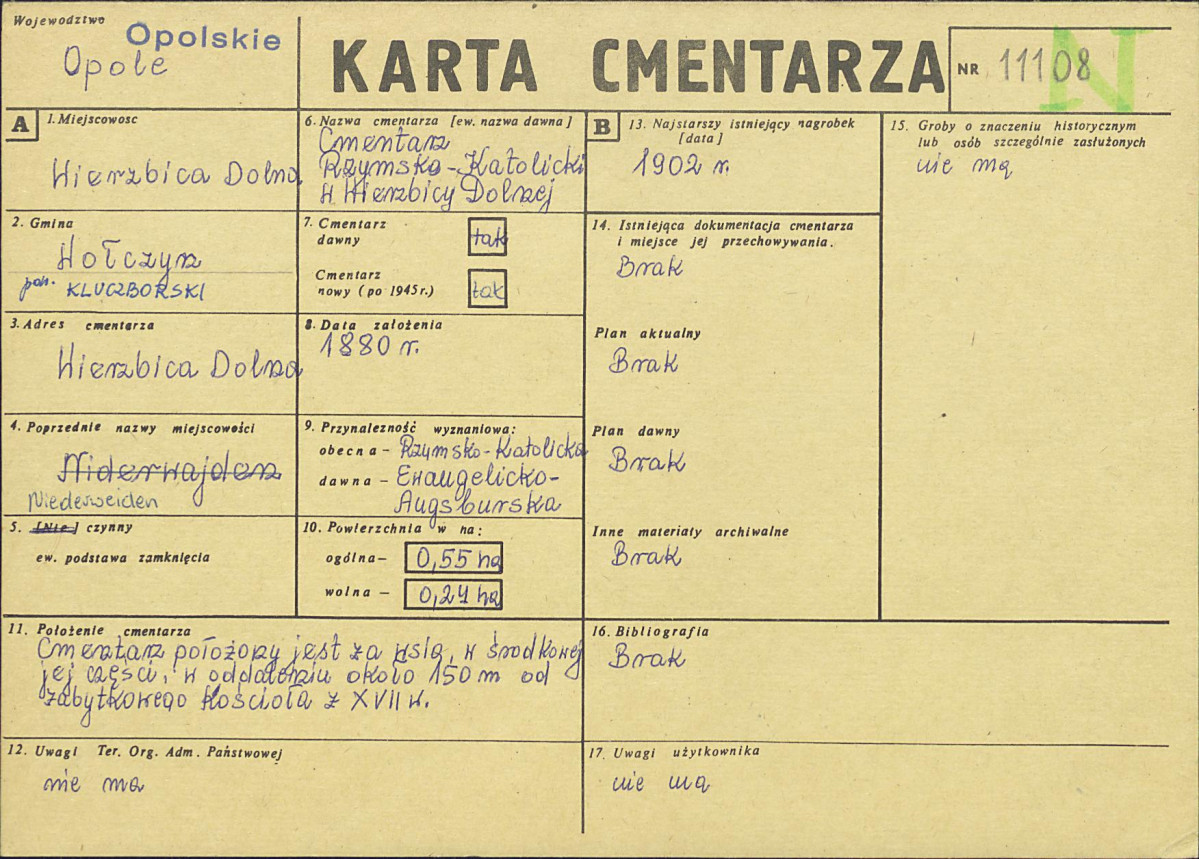 Województwo
Opolskie
Opole
KARTA CMENTARZA
NR 11108
N
A
1. Miejscowosc
Wierzbica Dolna
2. Gmina
Wołczyn
pow. KLUCZBORSKI
3. Adres cmentarza
Wierzbica Dolna
4. Poprzednie nazwy miejscowości
Niderwajden
Niederweiden
5. [Nie] czynny
ew. podstawa zamknięcia
6. Nazwa cmentarza [ew. nazwa dawna]
Cmentarz
Rzymsko-Katolicki
w Wierzbicy Dolnej
7. Cmentarz
dawny
tak
Cmentarz
nowy (po 1945 r.)
tak
8. Data założenia
1880 r.
9. Przynalezność wyznaniowa:
obecna - Rzymsko-Katolicka
dawna - Ewangelicko-
Augsburska
10. Powierzchnia w ha:
ogólna - 0,55 ha
wolna - 0,24 ha
11. Położenie cmentarza
Cmentarz położony jest za wsią, w środkowej
jej części, w oddaleniu około 150 m od
zabytkowego kościoła z XVII w.
12. Uwagi Ter. Org. Adm. Państwowej
nie ma
B
13. Najstarszy istniejący nagrobek
[data]
1902 r.
14. Istniejąca dokumentacja cmentarza
i miejsce jej przechowywania.
Brak
Plan aktualny
Brak
Plan dawny
Brak
Inne materiały archiwalne
Brak
15. Groby o znaczeniu historycznym
lub osób szczególnie zasłużonych
nie ma
16. Bibliografia
Brak
17. Uwagi użytkownika
nie ma